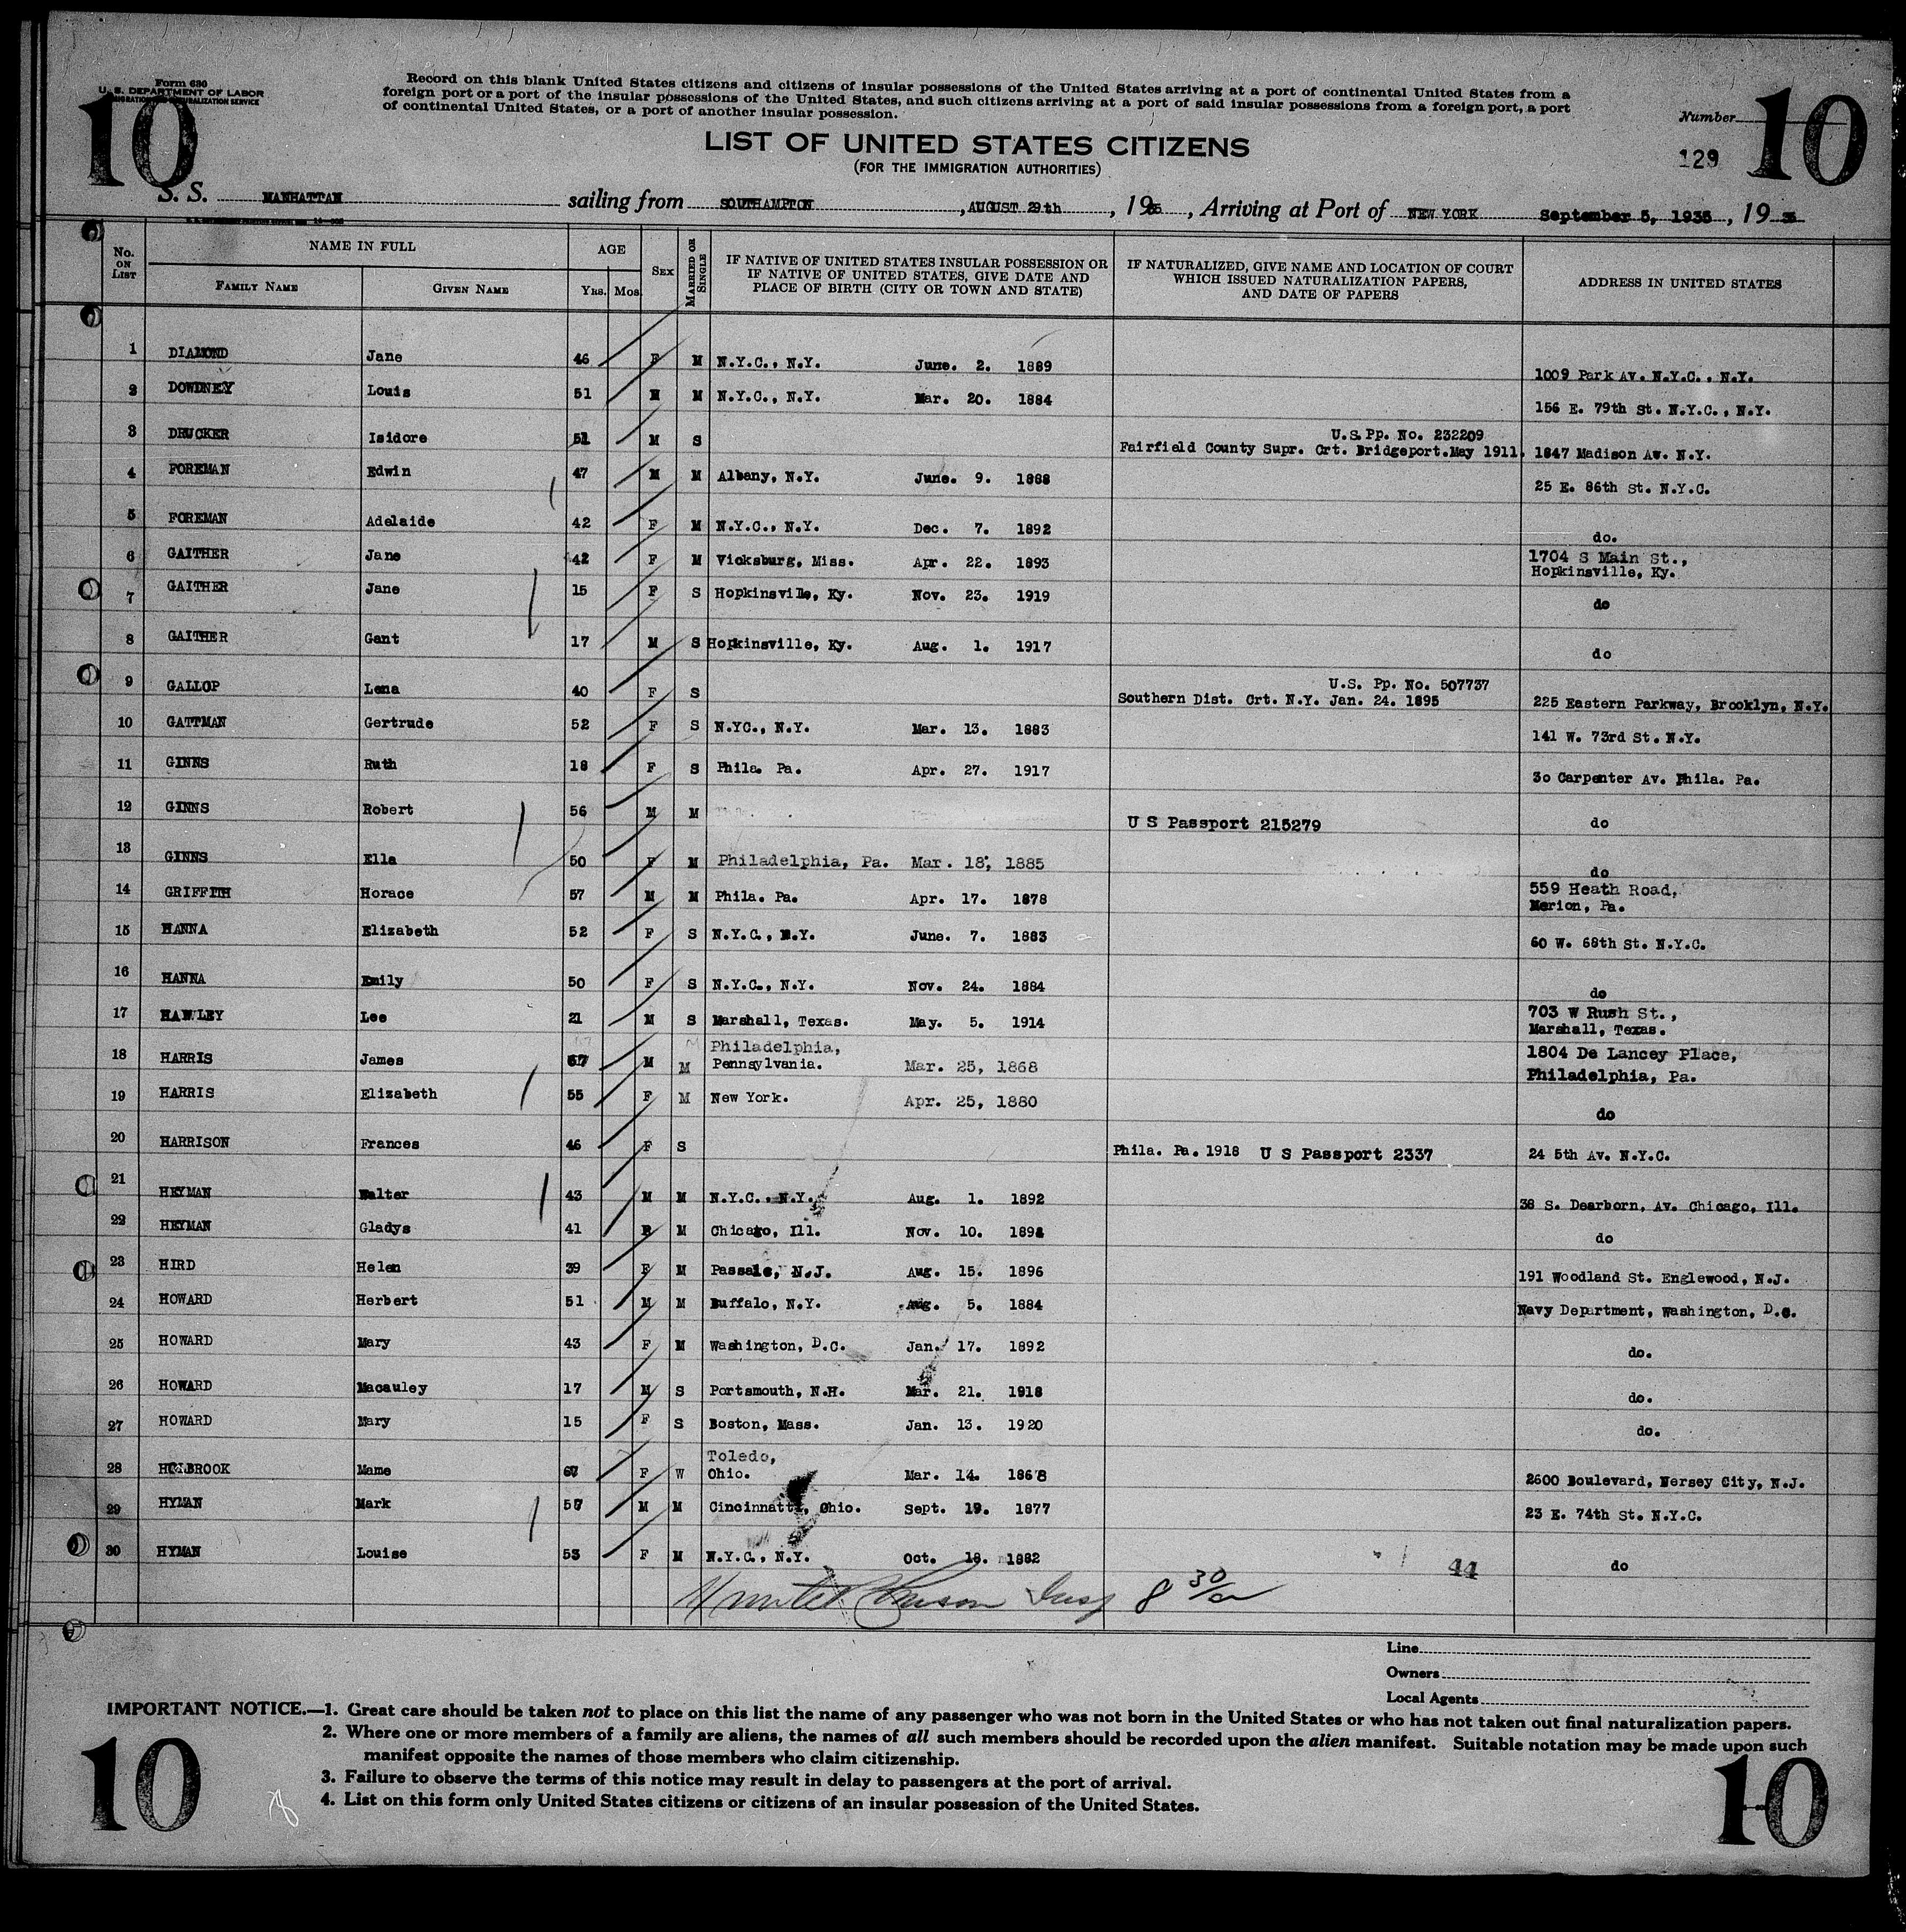 Form 630
U. S. DEPARTMENT OF LABOR
IMMIGRATION AND NATURALIZATION SERVICE
Record on this blank United States citizens and citizens of insular possessions of the United States arriving at a port of continental United States from a
foreign port or a port of the insular possessions of the United States, and such citizens arriving at a port of said insular possessions from a foreign port, a port
of continental United States, or a port of another insular possession.
10
10
Number
129
LIST OF UNITED STATES CITIZENS
(FOR THE IMMIGRATION AUTHORITIES)
S. S. MANHATTAN sailing from SOUTHAMPTON, AUGUST 29th, 1935, Arriving at Port of NEW YORK September 5, 1935, 1935
No. ON LIST
NAME IN FULL
FAMILY NAME
GIVEN NAME
AGE
YRS. MOS.
SEX
MARRIED OR SINGLE
IF NATIVE OF UNITED STATES INSULAR POSSESSION OR
IF NATIVE OF UNITED STATES, GIVE DATE AND
PLACE OF BIRTH (CITY OR TOWN AND STATE)
IF NATURALIZED, GIVE NAME AND LOCATION OF COURT
WHICH ISSUED NATURALIZATION PAPERS,
AND DATE OF PAPERS
ADDRESS IN UNITED STATES
1 DIAMOND Jane 46 F M N.Y.C., N.Y. June. 2. 1889 1009 Park Av. N.Y.C., N.Y.
2 DOWDNEY Louis 51 M M N.Y.C., N.Y. Mar. 20. 1884 156 E. 79th St. N.Y.C., N.Y.
3 DRUCKER Isidore 51 M S U.S.Pp. No. 232209
Fairfield County Supr. Crt. Bridgeport.May 1911. 1847 Madison Av. N.Y.
4 FOREMAN Edwin 47 M M Albany, N.Y. June. 9. 1888 25 E. 86th St. N.Y.C.
5 FOREMAN Adelaide 42 F M N.Y.C., N.Y. Dec. 7. 1892 do.
6 GAITHER Jane 42 F M Vicksburg, Miss. Apr. 22. 1893 1704 S Main St.,
Hopkinsville, Ky.
7 GAITHER Jane 15 F S Hopkinsville, Ky. Nov. 23. 1919 do
8 GAITHER Gant 17 M S Hopkinsville, Ky. Aug. 1. 1917 do
9 GALLOP Lena 40 F S U.S. Pp. No. 507737
Southern Dist. Crt. N.Y. Jan. 24. 1895 225 Eastern Parkway, Brooklyn, N.Y.
10 GATTMAN Gertrude 52 F S N.YC., N.Y. Mar. 13. 1883 141 W. 73rd St. N.Y.
11 GINNS Ruth 18 F S Phila. Pa. Apr. 27. 1917 30 Carpenter Av. Phila. Pa.
12 GINNS Robert 56 M M U S Passport 215279 do
13 GINNS Ella 50 F M Philadelphia, Pa. Mar. 18, 1885 do
14 GRIFFITH Horace 57 M M Phila. Pa. Apr. 17. 1878 559 Heath Road,
Merion, Pa.
15 HANNA Elizabeth 52 F S N.Y.C., N.Y. June. 7. 1883 60 W. 68th St. N.Y.C.
16 HANNA Emily 50 F S N.Y.C., N.Y. Nov. 24. 1884 do
17 HAWLEY Lee 21 M S Marshall, Texas. May. 5. 1914 703 W Rush St.,
Marshall, Texas.
18 HARRIS James 67 M M Philadelphia,
Pennsylvania. Mar. 25, 1868 1804 De Lancey Place,
Philadelphia, Pa.
19 HARRIS Elizabeth 55 F M New York. Apr. 25, 1880 do
20 HARRISON Frances 46 F S Phila. Pa. 1918 U S Passport 2337 24 5th Av. N.Y.C.
21 HEYMAN Walter 43 M M N.Y.C., N.Y. Aug. 1. 1892 38 S. Dearborn, Av. Chicago, Ill.
22 HEYMAN Gladys 41 F M Chicago, Ill. Nov. 10. 1894 do
23 HIRD Helen 39 F M Passaic, N.J. Aug. 15. 1896 191 Woodland St. Englewood, N.J.
24 HOWARD Herbert 51 M M Buffalo, N.Y. Aug. 5. 1884 Navy Department, Washington, D.C.
25 HOWARD Mary 43 F M Washington, D.C. Jan. 17. 1892 do.
26 HOWARD Macauley 17 M S Portsmouth, N.H. Mar. 21. 1918 do.
27 HOWARD Mary 15 F S Boston, Mass. Jan. 13. 1920 do.
28 HOLBROOK Mame 67 F W Toledo,
Ohio. Mar. 14. 1868 2600 Boulevard, Nersey City, N.J.
29 HYMAN Mark 57 M M Cincinnatti, Ohio. Sept. 19. 1877 23 E. 74th St. N.Y.C.
30 HYMAN Louise 53 F M N.Y.C., N.Y. Oct. 18. 1882 do
44
Insp 8 30/a
Line
Owners
Local Agents
IMPORTANT NOTICE.—1. Great care should be taken not to place on this list the name of any passenger who was not born in the United States or who has not taken out final naturalization papers.
2. Where one or more members of a family are aliens, the names of all such members should be recorded upon the alien manifest. Suitable notation may be made upon such
manifest opposite the names of those members who claim citizenship.
3. Failure to observe the terms of this notice may result in delay to passengers at the port of arrival.
4. List on this form only United States citizens or citizens of an insular possession of the United States.
10
10